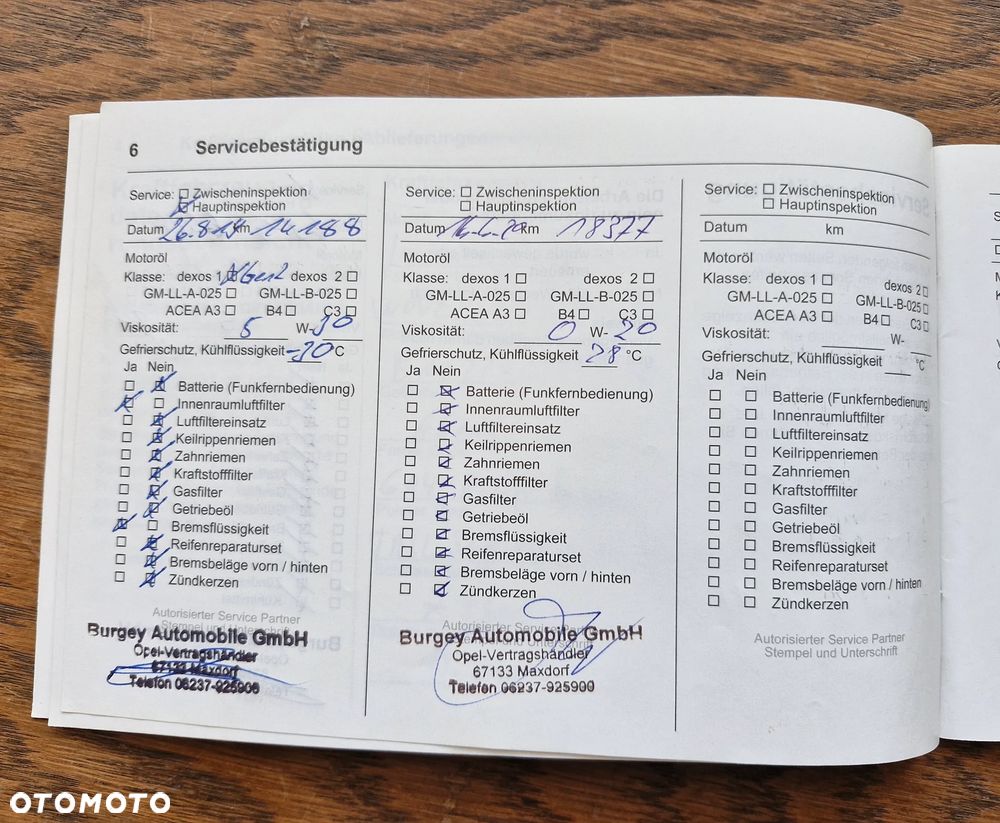 6 Servicebestätigung
Service: Zwischeninspektion
Hauptinspektion
Datum 26.8.19 km 14188
Motoröl
Klasse: dexos 1 dexos 2
GM-LL-A-025 GM-LL-B-025
ACEA A3 B4 C3
Viskosität: 5 W-30
Gefrierschutz, Kühlflüssigkeit -30 °C
Ja Nein
Batterie (Funkfernbedienung)
Innenraumluftfilter
Luftfiltereinsatz
Keilrippenriemen
Zahnriemen
Kraftstofffilter
Gasfilter
Getriebeöl
Bremsflüssigkeit
Reifenreparaturset
Bremsbeläge vorn / hinten
Zündkerzen
Autorisierter Service Partner
Stempel und Unterschrift
Burgey Automobile GmbH
Opel-Vertragshändler
67133 Maxdorf
Telefon 06237-925900
Service: Zwischeninspektion
Hauptinspektion
Datum km 18377
Motoröl
Klasse: dexos 1 dexos 2
GM-LL-A-025 GM-LL-B-025
ACEA A3 B4 C3
Viskosität: 0 W-20
Gefrierschutz, Kühlflüssigkeit 28 °C
Ja Nein
Batterie (Funkfernbedienung)
Innenraumluftfilter
Luftfiltereinsatz
Keilrippenriemen
Zahnriemen
Kraftstofffilter
Gasfilter
Getriebeöl
Bremsflüssigkeit
Reifenreparaturset
Bremsbeläge vorn / hinten
Zündkerzen
Autorisierter Service Partner
Stempel und Unterschrift
Burgey Automobile GmbH
Opel-Vertragshändler
67133 Maxdorf
Telefon 06237-925900
Service: Zwischeninspektion
Hauptinspektion
Datum km
Motoröl
Klasse: dexos 1 dexos 2
GM-LL-A-025 GM-LL-B-025
ACEA A3 B4 C3
Viskosität: W-
Gefrierschutz, Kühlflüssigkeit °C
Ja Nein
Batterie (Funkfernbedienung)
Innenraumluftfilter
Luftfiltereinsatz
Keilrippenriemen
Zahnriemen
Kraftstofffilter
Gasfilter
Getriebeöl
Bremsflüssigkeit
Reifenreparaturset
Bremsbeläge vorn / hinten
Zündkerzen
Autorisierter Service Partner
Stempel und Unterschrift
OTOMOTO